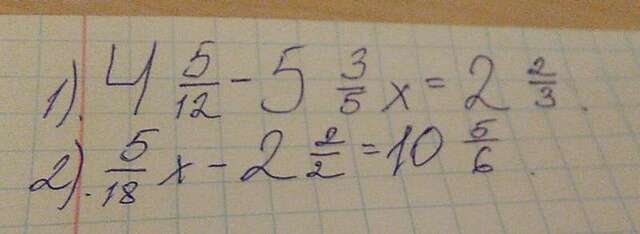 1). 4 5/12 - 5 3/5 x = 2 2/3.
2). 5/18 x - 2 2/2 = 10 5/6.